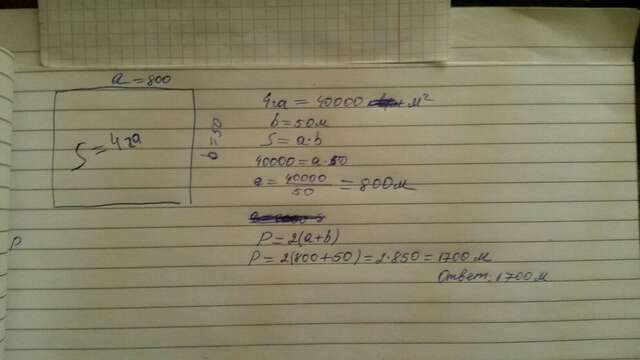 a = 800
S = 4га
b = 50
4га = 40000 м²
b = 50м
S = a·b
40000 = a·50
a = 40000/50 = 800м
P = 2(a+b)
P = 2(800+50) = 2·850 = 1700 м
Ответ. 1700м
P